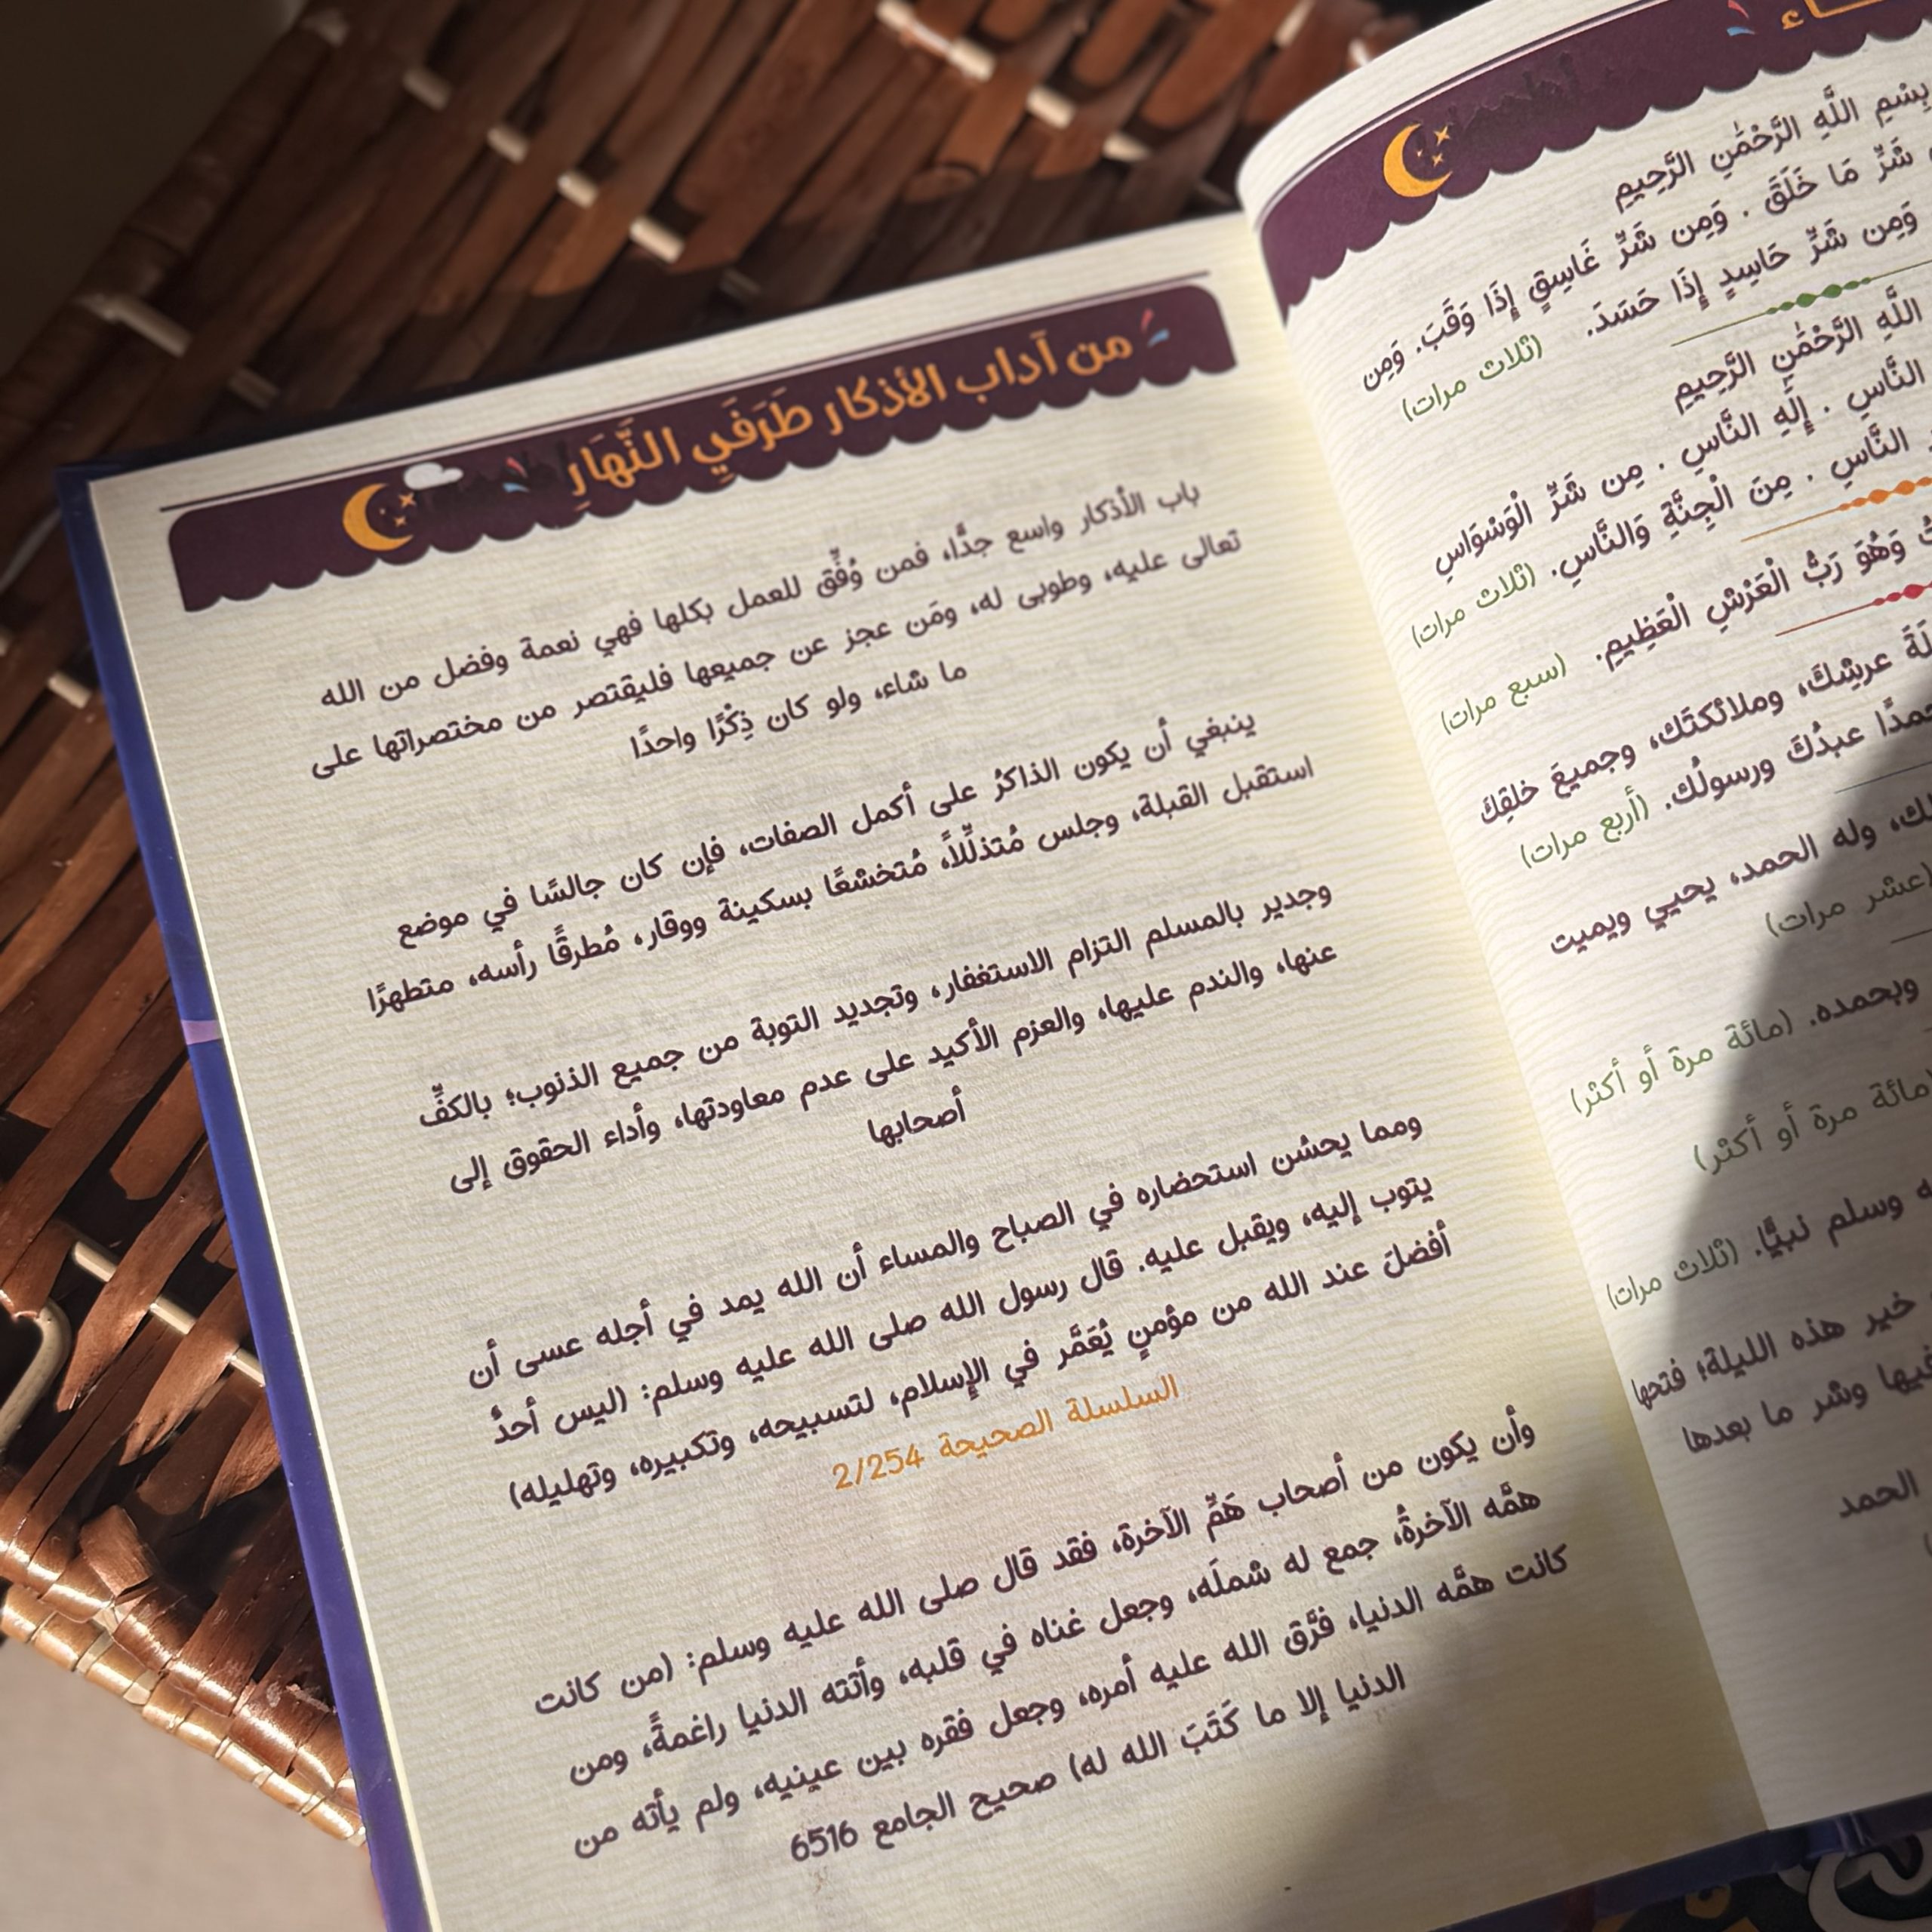 بِسْمِ اللَّهِ الرَّحْمَٰنِ الرَّحِيمِ
شَرِّ مَا خَلَقَ . وَمِن شَرِّ غَاسِقٍ إِذَا وَقَبَ. وَمِن
وَمِن شَرِّ حَاسِدٍ إِذَا حَسَدَ. (ثلاث مرات)
اللَّهِ الرَّحْمَٰنِ الرَّحِيمِ
النَّاسِ . إِلَٰهِ النَّاسِ . مِن شَرِّ الْوَسْوَاسِ
النَّاسِ . مِنَ الْجِنَّةِ وَالنَّاسِ. (ثلاث مرات)
وَهُوَ رَبُّ الْعَرْشِ الْعَظِيمِ. (سبع مرات)
عرشِكَ، وملائكتَك، وجميعَ خلقِكَ
عبدُكَ ورسولُك. (أربع مرات)
وله الحمد، يحيي ويميت
(عشر مرات)
وبحمده. (مائة مرة أو أكثر)
(مائة مرة أو أكثر)
وسلم نبيًّا. (ثلاث مرات)
خير هذه الليلة؛ فتحها
وشر ما بعدها
الحمد
من آداب الأذكار طَرَفَيِ النَّهَارِ
باب الأذكار واسع جدًّا، فمن وُفِّق للعمل بكلها فهي نعمة وفضل من الله
تعالى عليه، وطوبى له، ومَن عجز عن جميعها فليقتصر من مختصراتها على
ما شاء، ولو كان ذِكْرًا واحدًا
ينبغي أن يكون الذاكرُ على أكمل الصفات، فإن كان جالسًا في موضع
استقبل القبلة، وجلس مُتذلِّلاً، مُتخشعًا بسكينة ووقار، مُطرقًا رأسه، متطهرًا
وجدير بالمسلم التزام الاستغفار، وتجديد التوبة من جميع الذنوب؛ بالكفِّ
عنها، والندم عليها، والعزم الأكيد على عدم معاودتها، وأداء الحقوق إلى
أصحابها
ومما يحسُن استحضاره في الصباح والمساء أن الله يمد في أجله عسى أن
يتوب إليه، ويقبل عليه. قال رسول الله صلى الله عليه وسلم: (ليس أحدٌ
أفضلَ عند الله من مؤمنٍ يُعَمَّر في الإسلام، لتسبيحه، وتكبيره، وتهليله)
السلسلة الصحيحة 2/254
وأن يكون من أصحاب هَمِّ الآخرة، فقد قال صلى الله عليه وسلم: (من كانت
همَّه الآخرةُ، جمع له شملَه، وجعل غناه في قلبه، وأتته الدنيا راغمةً، ومن
كانت همَّه الدنيا، فرَّق الله عليه أمره، وجعل فقره بين عينيه، ولم يأته من
الدنيا إلا ما كَتَبَ الله له) صحيح الجامع 6516